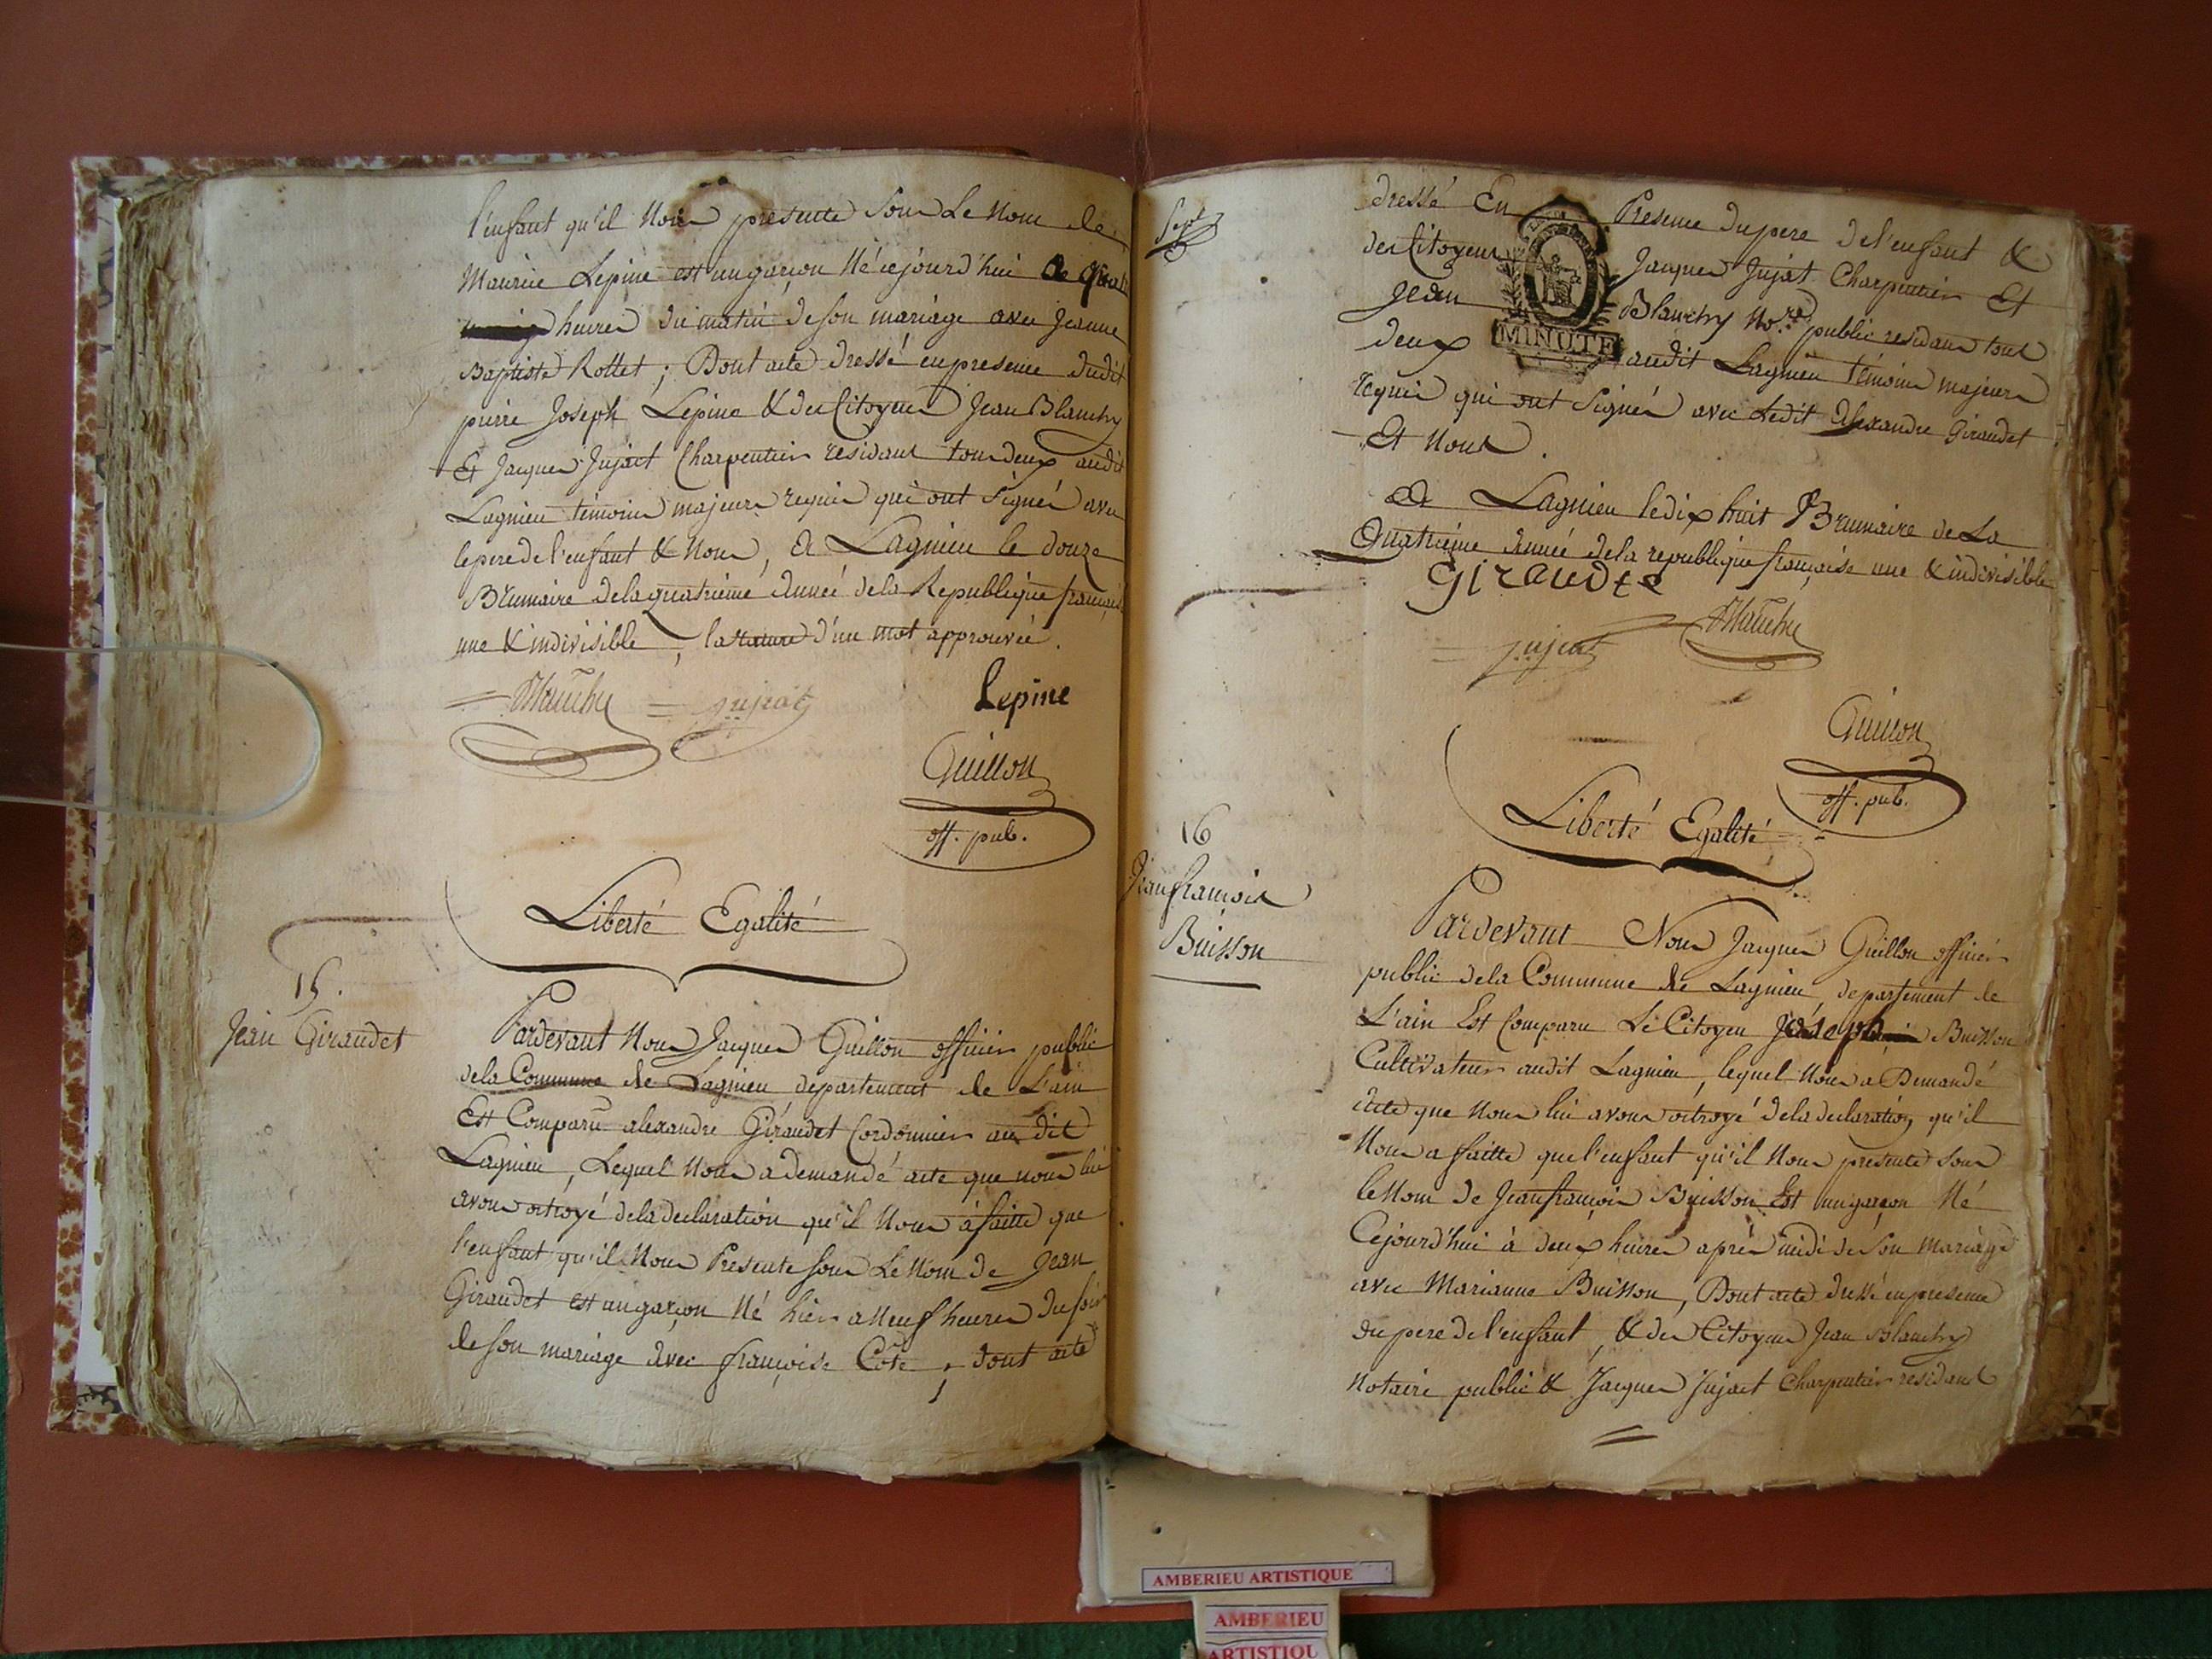 l'enfant qu'il Nous presente Sous Le Nom de
Maurice Lepine est un garçon Né cejourd'hui a quatre
heures du matin de son mariage avec Jeanne
Baptiste Rollet ; Dont acte dressé en presence dudit
pierre Joseph Lepine & des Citoyens Jean Blanchy
Et Jacques Jujat Charpentier residant tous deux audit
Lagnieu témoins majeurs requis qui ont signés avec
le pere de l'enfant & Nous, A Lagnieu le douze
Brumaire de la quatrieme année de la Republique française
une & indivisible, la rature d'un mot approuvée.
Blanchy jujat Lepine
Guillon
off. pub.
Liberté Egalité
15.
Jean Giraudet
Pardevant Nous Jacques Guillon officier public
de la Commune de Lagnieu departement de L'ain
Est Comparu alexandre Giraudet Cordonnier au dit
Lagnieu, Lequel Nous a demandé acte que nous lui
avons octroyé de la declaration qu'il Nous a faitte que
l'enfant qu'il Nous Presente sous Le Nom de Jean
Giraudet est un garçon Né hier a Neuf heures du soir
de son mariage avec françoise Cote, dont acte
Sept
dressé En Presence du pere de l'enfant &
des Citoyens Jacques Jujat Charpentier Et
Jean Blanchy No.re public residant tous
deux audit Lagnieu témoins majeurs
MINUTE
requis qui ont signés avec Ledit Alexandre Giraudet
Et Nous.
A Lagnieu le dix huit Brumaire de La
Quatrieme année de la republique française une & indivisible
Giraudes
jujat Blanchy
Guillon
off. pub.
Liberté Egalité
16
Jean françois
Buisson
Pardevant Nous Jacques Guillon officier
public de la Commune de Lagnieu, departement de
L'ain Est Comparu Le Citoyen Joseph Buisson
Cultivateur audit Lagnieu, lequel Nous a Demandé
acte que Nous lui avons octroyé de la declaration qu'il
Nous a faitte que l'enfant qu'il Nous presente sous
le Nom de Jean françois Buisson Est un garçon Né
Cejourd'hui à deux heures après midi de son mariage
avec Marianne Buisson, Dont acte dressé en presence
du pere de l'enfant, & des Citoyens Jean Blanchy
Notaire public & Jacques Jujat Charpentier residant
AMBERIEU ARTISTIQUE
AMBERIEU